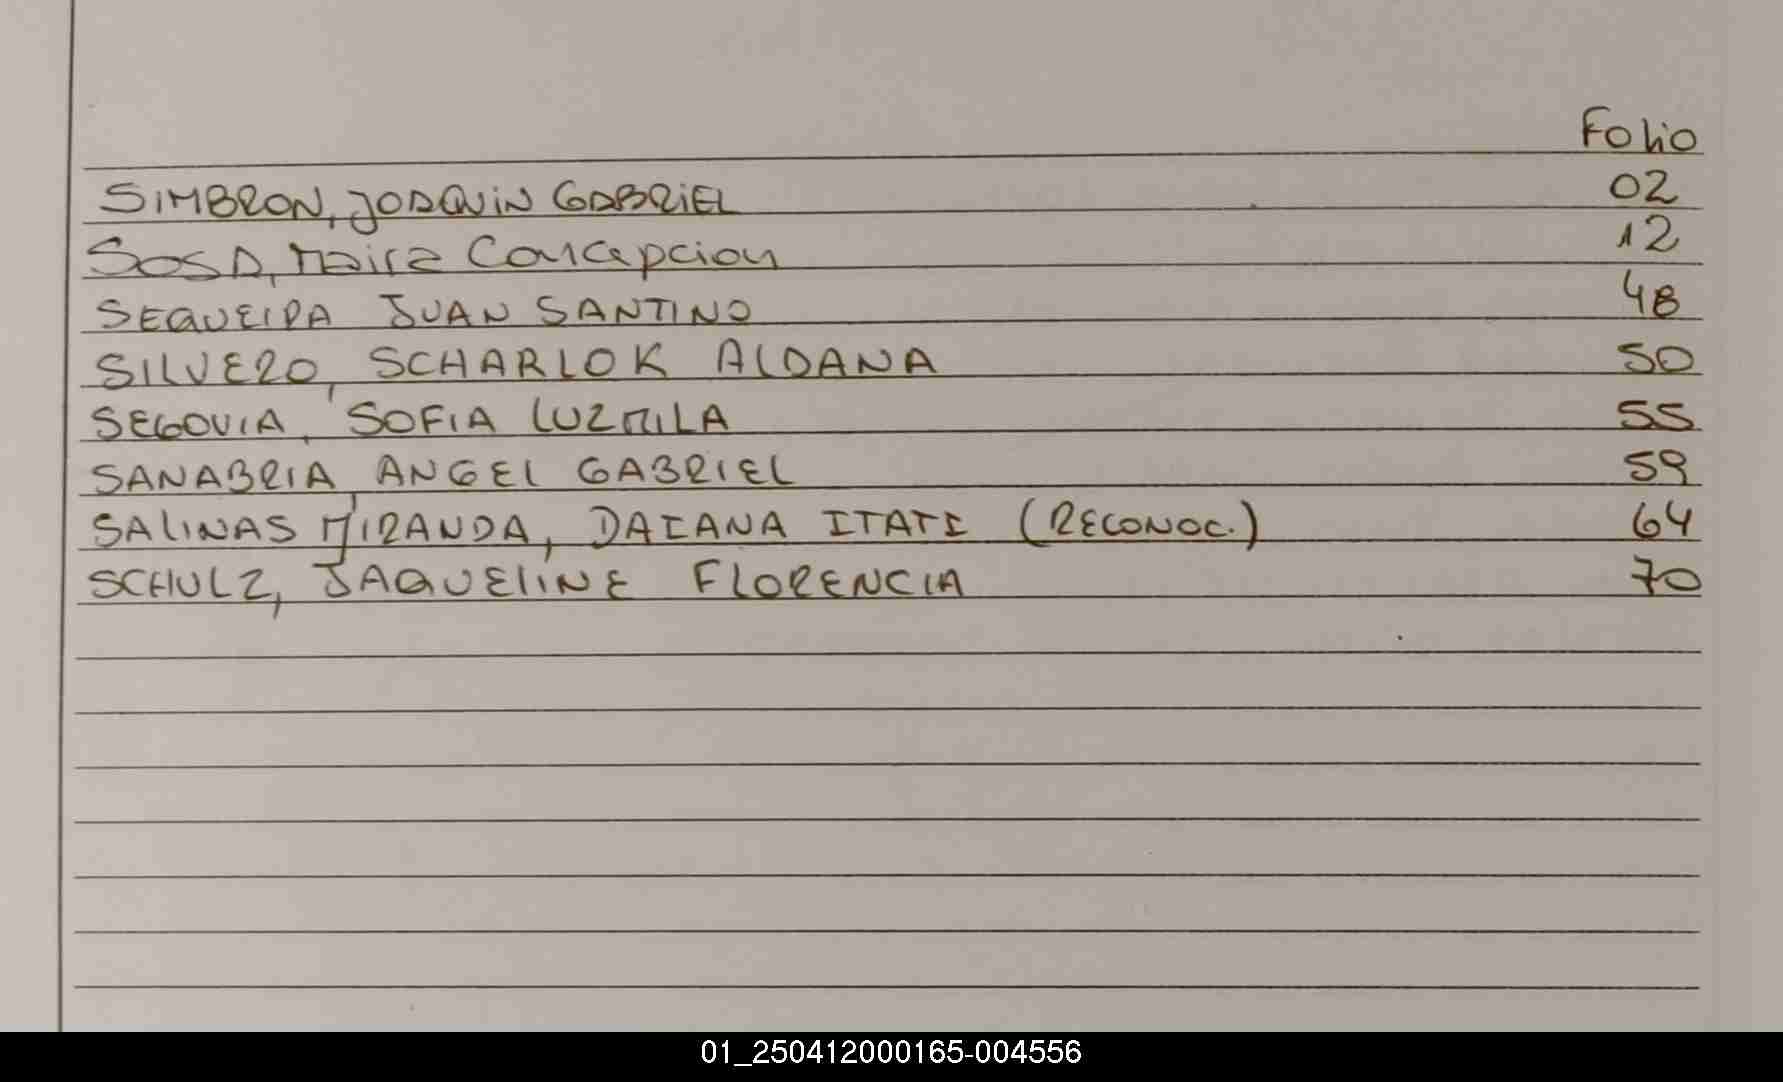 Folio
SIMBRON, JOAQUIN GABRIEL 02
SOSA, Maira Concepcion 12
SEQUEIRA JUAN SANTINO 48
SILVERO, SCHARLOK ALDANA 50
SEGOVIA, SOFIA LUZMILA 55
SANABRIA, ANGEL GABRIEL 59
SALINAS MIRANDA, DAIANA ITATI (RECONOC.) 64
SCHULZ, JAQUELINE FLORENCIA 70
01_250412000165-004556